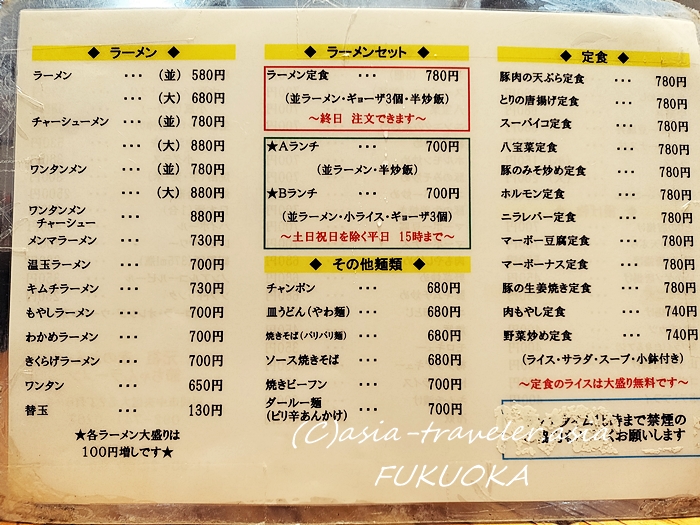 ◆ ラーメン ◆
ラーメン ･･･ (並) 580円
･･･ (大) 680円
チャーシューメン ･･･ (並) 780円
･･･ (大) 880円
ワンタンメン ･･･ (並) 780円
･･･ (大) 880円
ワンタンメン
チャーシュー ･･･ 880円
メンマラーメン ･･･ 730円
温玉ラーメン ･･･ 700円
キムチラーメン ･･･ 730円
もやしラーメン ･･･ 700円
わかめラーメン ･･･ 700円
きくらげラーメン ･･･ 700円
ワンタン ･･･ 650円
替玉 ･･･ 130円
★各ラーメン大盛りは
100円増しです★
◆ ラーメンセット ◆
ラーメン定食 ･･･ 780円
(並ラーメン・ギョーザ3個・半炒飯)
～終日 注文できます～
★Aランチ ･･･ 700円
(並ラーメン・半炒飯)
★Bランチ ･･･ 700円
(並ラーメン・小ライス・ギョーザ3個)
～土日祝日を除く平日 15時まで～
◆ その他麺類 ◆
チャンポン ･･･ 680円
皿うどん(やわ麺) ･･･ 680円
焼きそば(バリバリ麺) ･･･ 680円
ソース焼きそば ･･･ 680円
焼きビーフン ･･･ 700円
ダールー麺
(ピリ辛あんかけ) ･･･ 700円
◆ 定食 ◆
豚肉の天ぷら定食 ･･･ 780円
とりの唐揚げ定食 ･･･ 780円
スーパイコ定食 ･･･ 780円
八宝菜定食 ･･･ 780円
豚のみそ炒め定食 ･･･ 780円
ホルモン定食 ･･･ 780円
ニラレバー定食 ･･･ 780円
マーボー豆腐定食 ･･･ 780円
マーボーナス定食 ･･･ 780円
豚の生姜焼き定食 ･･･ 780円
肉もやし定食 ･･･ 740円
野菜炒め定食 ･･･ 740円
(ライス・サラダ・スープ・小鉢付き)
～定食のライスは大盛り無料です～
時まで禁煙の
くお願いします
(C)asia-traveler.asia
FUKUOKA